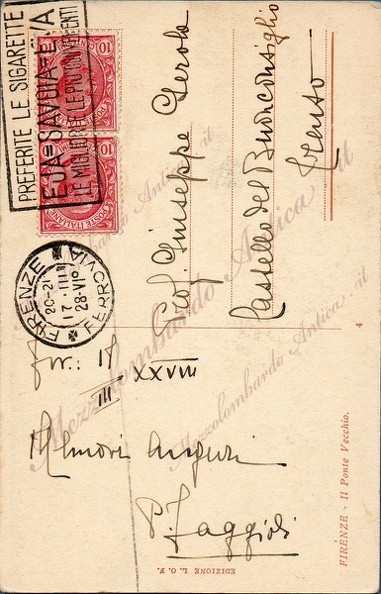 PREFERITE LE SIGARETTE
EJA=SAVOIA=EVA
LE MIGLIORI E LE PIÙ CONVENIENTI
10 10
POSTE ITALIANE
FIRENZE
FERROVIA
20-21
17 III
28-VI°
Prof. Giuseppe Gerola
Castello del Buonconsiglio
Trento
17
III
XXVIII
Auguri
P. Zaggioli
Mezzolombardo Antica.it
Mezzolombardo Antica.it
Mezzolombardo Antica.it
FIRENZE - Il Ponte Vecchio.
4
EDIZIONE L. O. F.